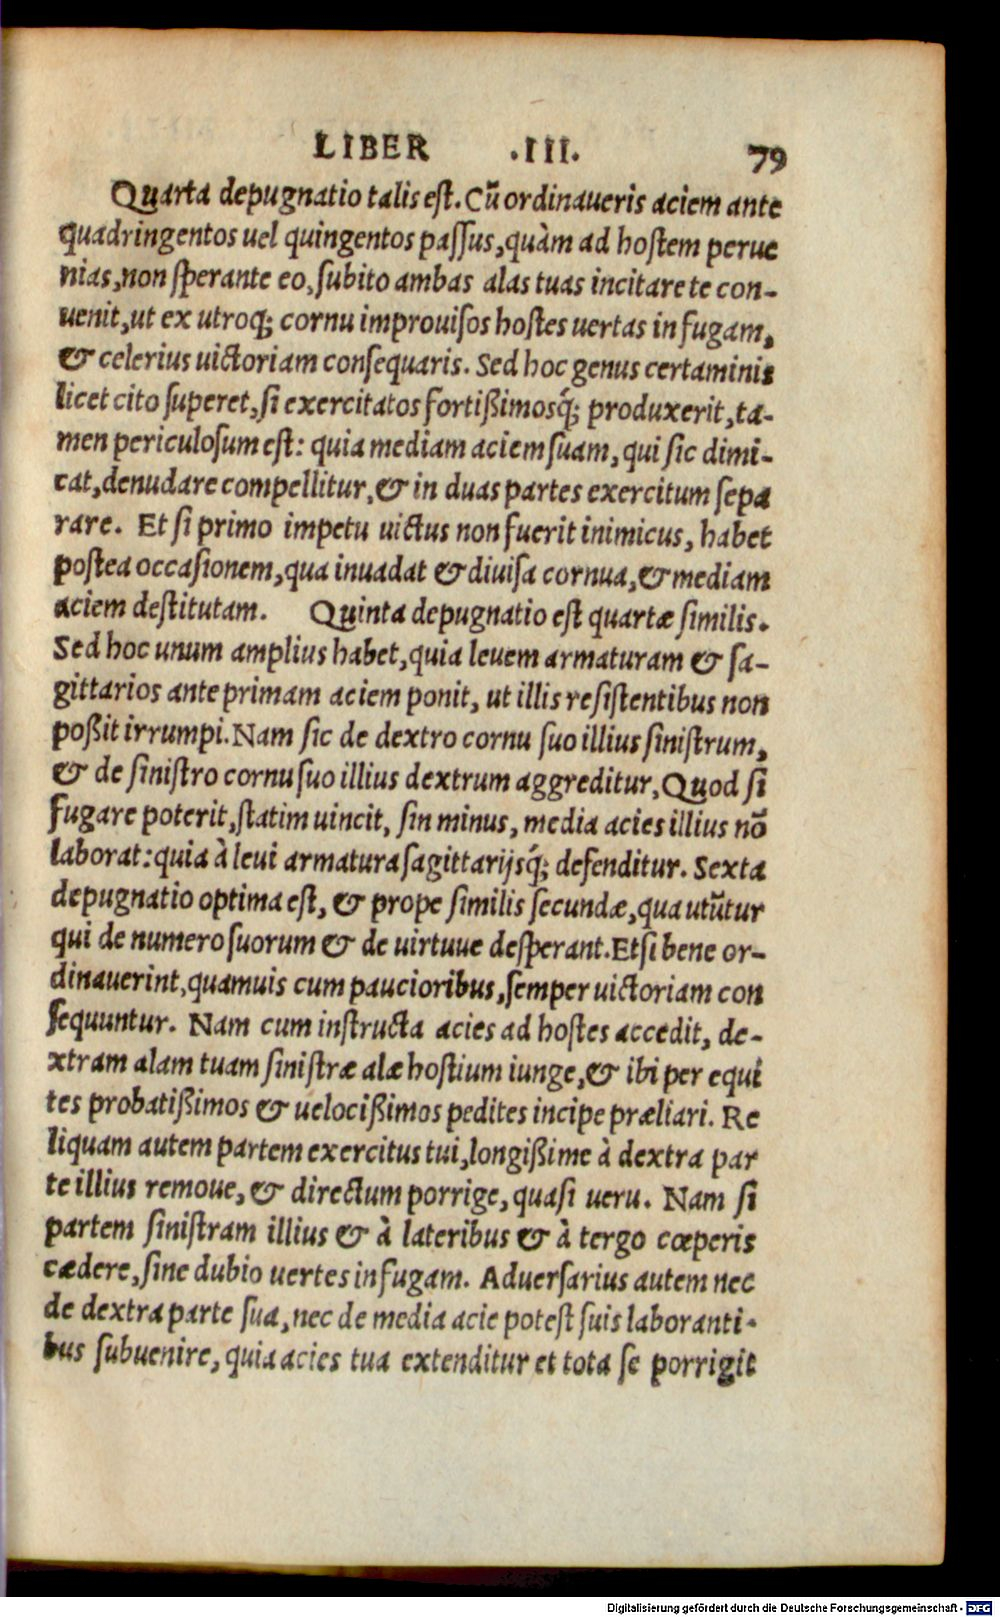 LIBER .III. 79
Quarta depugnatio talis est. Cũ ordinaueris aciem ante
quadringentos uel quingentos passus, quàm ad hostem perue
nias, non sperante eo, subito ambas alas tuas incitare te con-
uenit, ut ex utroq; cornu improuisos hostes uertas in fugam,
& celerius uictoriam consequaris. Sed hoc genus certaminis
licet cito superet, si exercitatos fortißimosq́; produxerit, ta-
men periculosum est: quia mediam aciem suam, qui sic dimi-
cat, denudare compellitur, & in duas partes exercitum sepa
rare. Et si primo impetu uictus non fuerit inimicus, habet
postea occasionem, qua inuadat & diuisa cornua, & mediam
aciem destitutam. Quinta depugnatio est quartæ similis.
Sed hoc unum amplius habet, quia leuem armaturam & sa-
gittarios ante primam aciem ponit, ut illis resistentibus non
poßit irrumpi. Nam sic de dextro cornu suo illius sinistrum,
& de sinistro cornu suo illius dextrum aggreditur, Quod si
fugare poterit, statim uincit, sin minus, media acies illius nõ
laborat: quia à leui armatura sagittarijsq́; defenditur. Sexta
depugnatio optima est, & prope similis secundæ, qua utũtur
qui de numero suorum & de uirtuue desperant. Etsi bene or-
dinauerint, quamuis cum paucioribus, semper uictoriam con
sequuntur. Nam cum instructa acies ad hostes accedit, de-
xtram alam tuam sinistræ alæ hostium iunge, & ibi per equi
tes probatißimos & uelocißimos pedites incipe præliari. Re
liquam autem partem exercitus tui, longißime à dextra par
te illius remoue, & directum porrige, quasi ueru. Nam si
partem sinistram illius & à lateribus & à tergo cœperis
cædere, sine dubio uertes in fugam. Aduersarius autem nec
de dextra parte sua, nec de media acie potest suis laboranti-
bus subuenire, quia acies tua extenditur et tota se porrigit
Digitalisierung gefördert durch die Deutsche Forschungsgemeinschaft - DFG